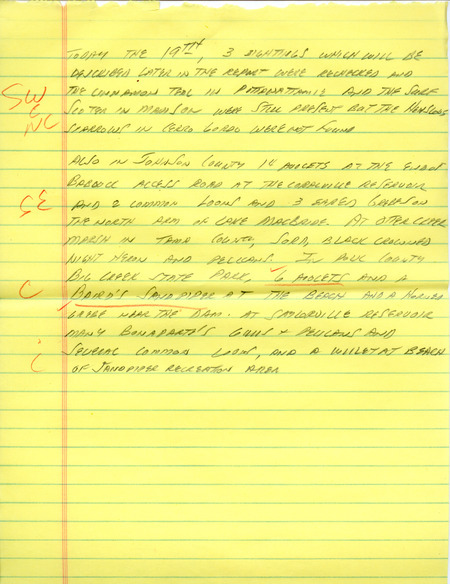 TODAY THE 19TH, 3 SIGHTINGS WHICH WILL BE
DESCRIBED LATER IN THE REPORT WERE RECHECKED AND
SW THE CINNAMON TEAL IN POTTAWATTAMIE AND THE SURF
& SCOTER IN MADISON WERE STILL PRESENT BUT THE HENSLOWS
NC SPARROWS IN CERRO GORDO WERE NOT FOUND
ALSO IN JOHNSON COUNTY 18 AVOCETS AT THE END OF
BABCOCK ACCESS ROAD AT THE CORALVILLE RESERVOIR
SE AND 2 COMMON LOONS AND 3 EARED GREBES ON
THE NORTH ARM OF LAKE MACBRIDE. AT OTTER CREEK
MARSH IN TAMA COUNTY, SORA, BLACK CROWNED
NIGHT HERON AND PELICANS. IN POLK COUNTY
BIG CREEK STATE PARK, 6 AVOCETS AND A
C BAIRD'S SANDPIPER AT THE BEACH AND A HORNED
GREBE NEAR THE DAM. AT SAYLORVILLE RESERVOIR
MANY BONAPARTE'S GULLS + PELICANS AND
SEVERAL COMMON LOONS, AND A WILLET AT BEACH
OF SANDPIPER RECREATION AREA